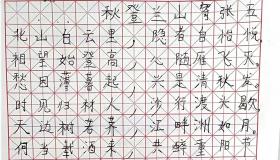 秋登兰山寄张五
北山白云里，隐者自怡悦。
相望始登高，心随雁飞灭。
愁因薄暮起，兴是清秋发。
时见归村人，沙行渡头歇。
天边树若荠，江畔洲如月。
何当载酒来，共醉重阳节。